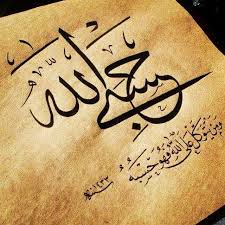 حسبي الله
ومن يتوكل على الله فهو حسبه